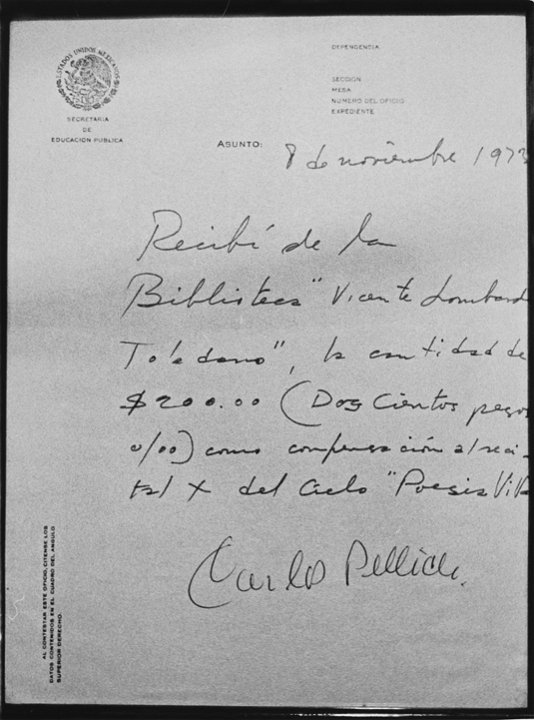 ESTADOS UNIDOS MEXICANOS
SECRETARIA
DE
EDUCACION PUBLICA
DEPENDENCIA
SECCION
MESA
NUMERO DEL OFICIO
EXPEDIENTE
ASUNTO:
8 de noviembre 1973
Recibí de la
Biblioteca "Vicente Lombard
Toledano", la cantidad de
$200.00 (Dos Cientos pesos
0/00) como compensación al reci-
tal X del Ciclo "Poesía Viva
Carlos Pellicer.
AL CONTESTAR ESTE OFICIO, CITENSE LOS
DATOS CONTENIDOS EN EL CUADRO DEL ANGULO
SUPERIOR DERECHO.